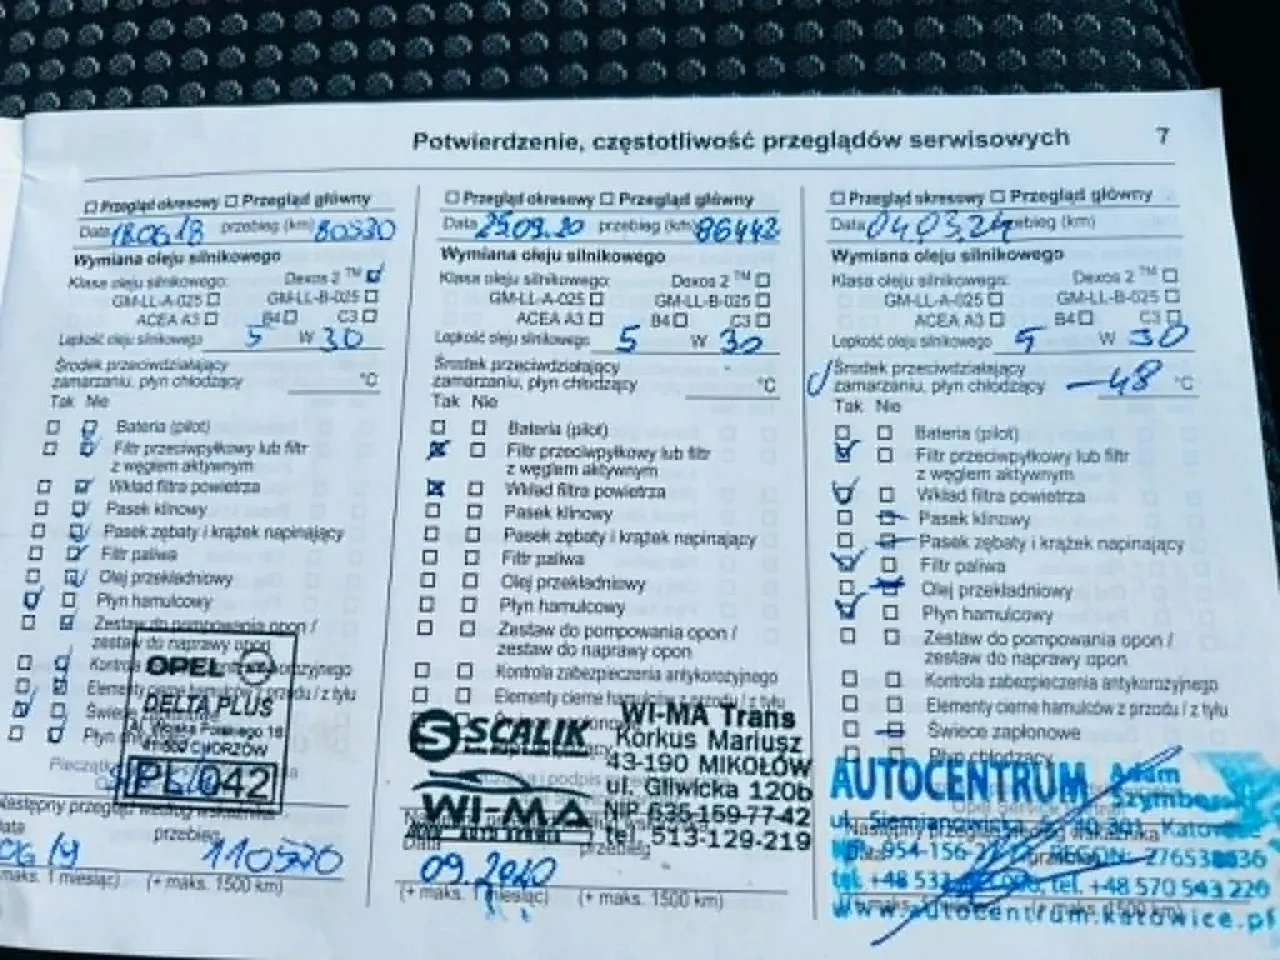 Potwierdzenie, częstotliwość przeglądów serwisowych 7
Przegląd okresowy Przegląd główny
Data 18.06.18 przebieg (km) 80530
Wymiana oleju silnikowego
Klasa oleju silnikowego: Dexos 2 ™
GM-LL-A-025 GM-LL-B-025
ACEA A3 B4 C3
Lepkość oleju silnikowego 5 W 30
Środek przeciwdziałający
zamarzaniu, płyn chłodzący °C
Tak Nie
Bateria (pilot)
Filtr przeciwpyłkowy lub filtr
z węglem aktywnym
Wkład filtra powietrza
Pasek klinowy
Pasek zębaty i krążek napinający
Filtr paliwa
Olej przekładniowy
Płyn hamulcowy
Zestaw do pompowania opon /
zestaw do naprawy opon
Elementy cierne hamulców z przodu / z tyłu
OPEL
DELTA PLUS
41-500 CHORZÓW
PL 042
przebieg
110530
(+ maks. 1500 km)
Przegląd okresowy Przegląd główny
Data 25.09.20 przebieg (km) 86442
Wymiana oleju silnikowego
Klasa oleju silnikowego: Dexos 2 ™
GM-LL-A-025 GM-LL-B-025
ACEA A3 B4 C3
Lepkość oleju silnikowego 5 W 30
Środek przeciwdziałający
zamarzaniu, płyn chłodzący °C
Tak Nie
Bateria (pilot)
Filtr przeciwpyłkowy lub filtr
z węglem aktywnym
Wkład filtra powietrza
Pasek klinowy
Pasek zębaty i krążek napinający
Filtr paliwa
Olej przekładniowy
Płyn hamulcowy
Zestaw do pompowania opon /
zestaw do naprawy opon
Kontrola zabezpieczenia antykorozyjnego
Elementy cierne hamulców z przodu / z tyłu
SCALIK
WI-MA
AUTO SERWIS
WI-MA Trans
Korkus Mariusz
43-190 MIKOŁÓW
ul. Gliwicka 120b
NIP 635-159-77-42
tel. 513-129-219
Data przebieg
(+ maks. 1 miesiąc) (+ maks. 1500 km)
Przegląd okresowy Przegląd główny
Data 04.03.24 przebieg (km)
Wymiana oleju silnikowego
Klasa oleju silnikowego: Dexos 2 ™
GM-LL-A-025 GM-LL-B-025
ACEA A3 B4 C3
Lepkość oleju silnikowego 5 W 30
Środek przeciwdziałający
zamarzaniu, płyn chłodzący -48 °C
Tak Nie
Bateria (pilot)
Filtr przeciwpyłkowy lub filtr
z węglem aktywnym
Wkład filtra powietrza
Pasek klinowy
Pasek zębaty i krążek napinający
Filtr paliwa
Olej przekładniowy
Płyn hamulcowy
Zestaw do pompowania opon /
zestaw do naprawy opon
Kontrola zabezpieczenia antykorozyjnego
Elementy cierne hamulców z przodu / z tyłu
Świece zapłonowe
Płyn chłodzący
AUTOCENTRUM Adam
ul. Siemianowicka
tel. +48 570 543 220
www.autocentrum.katowice.pl